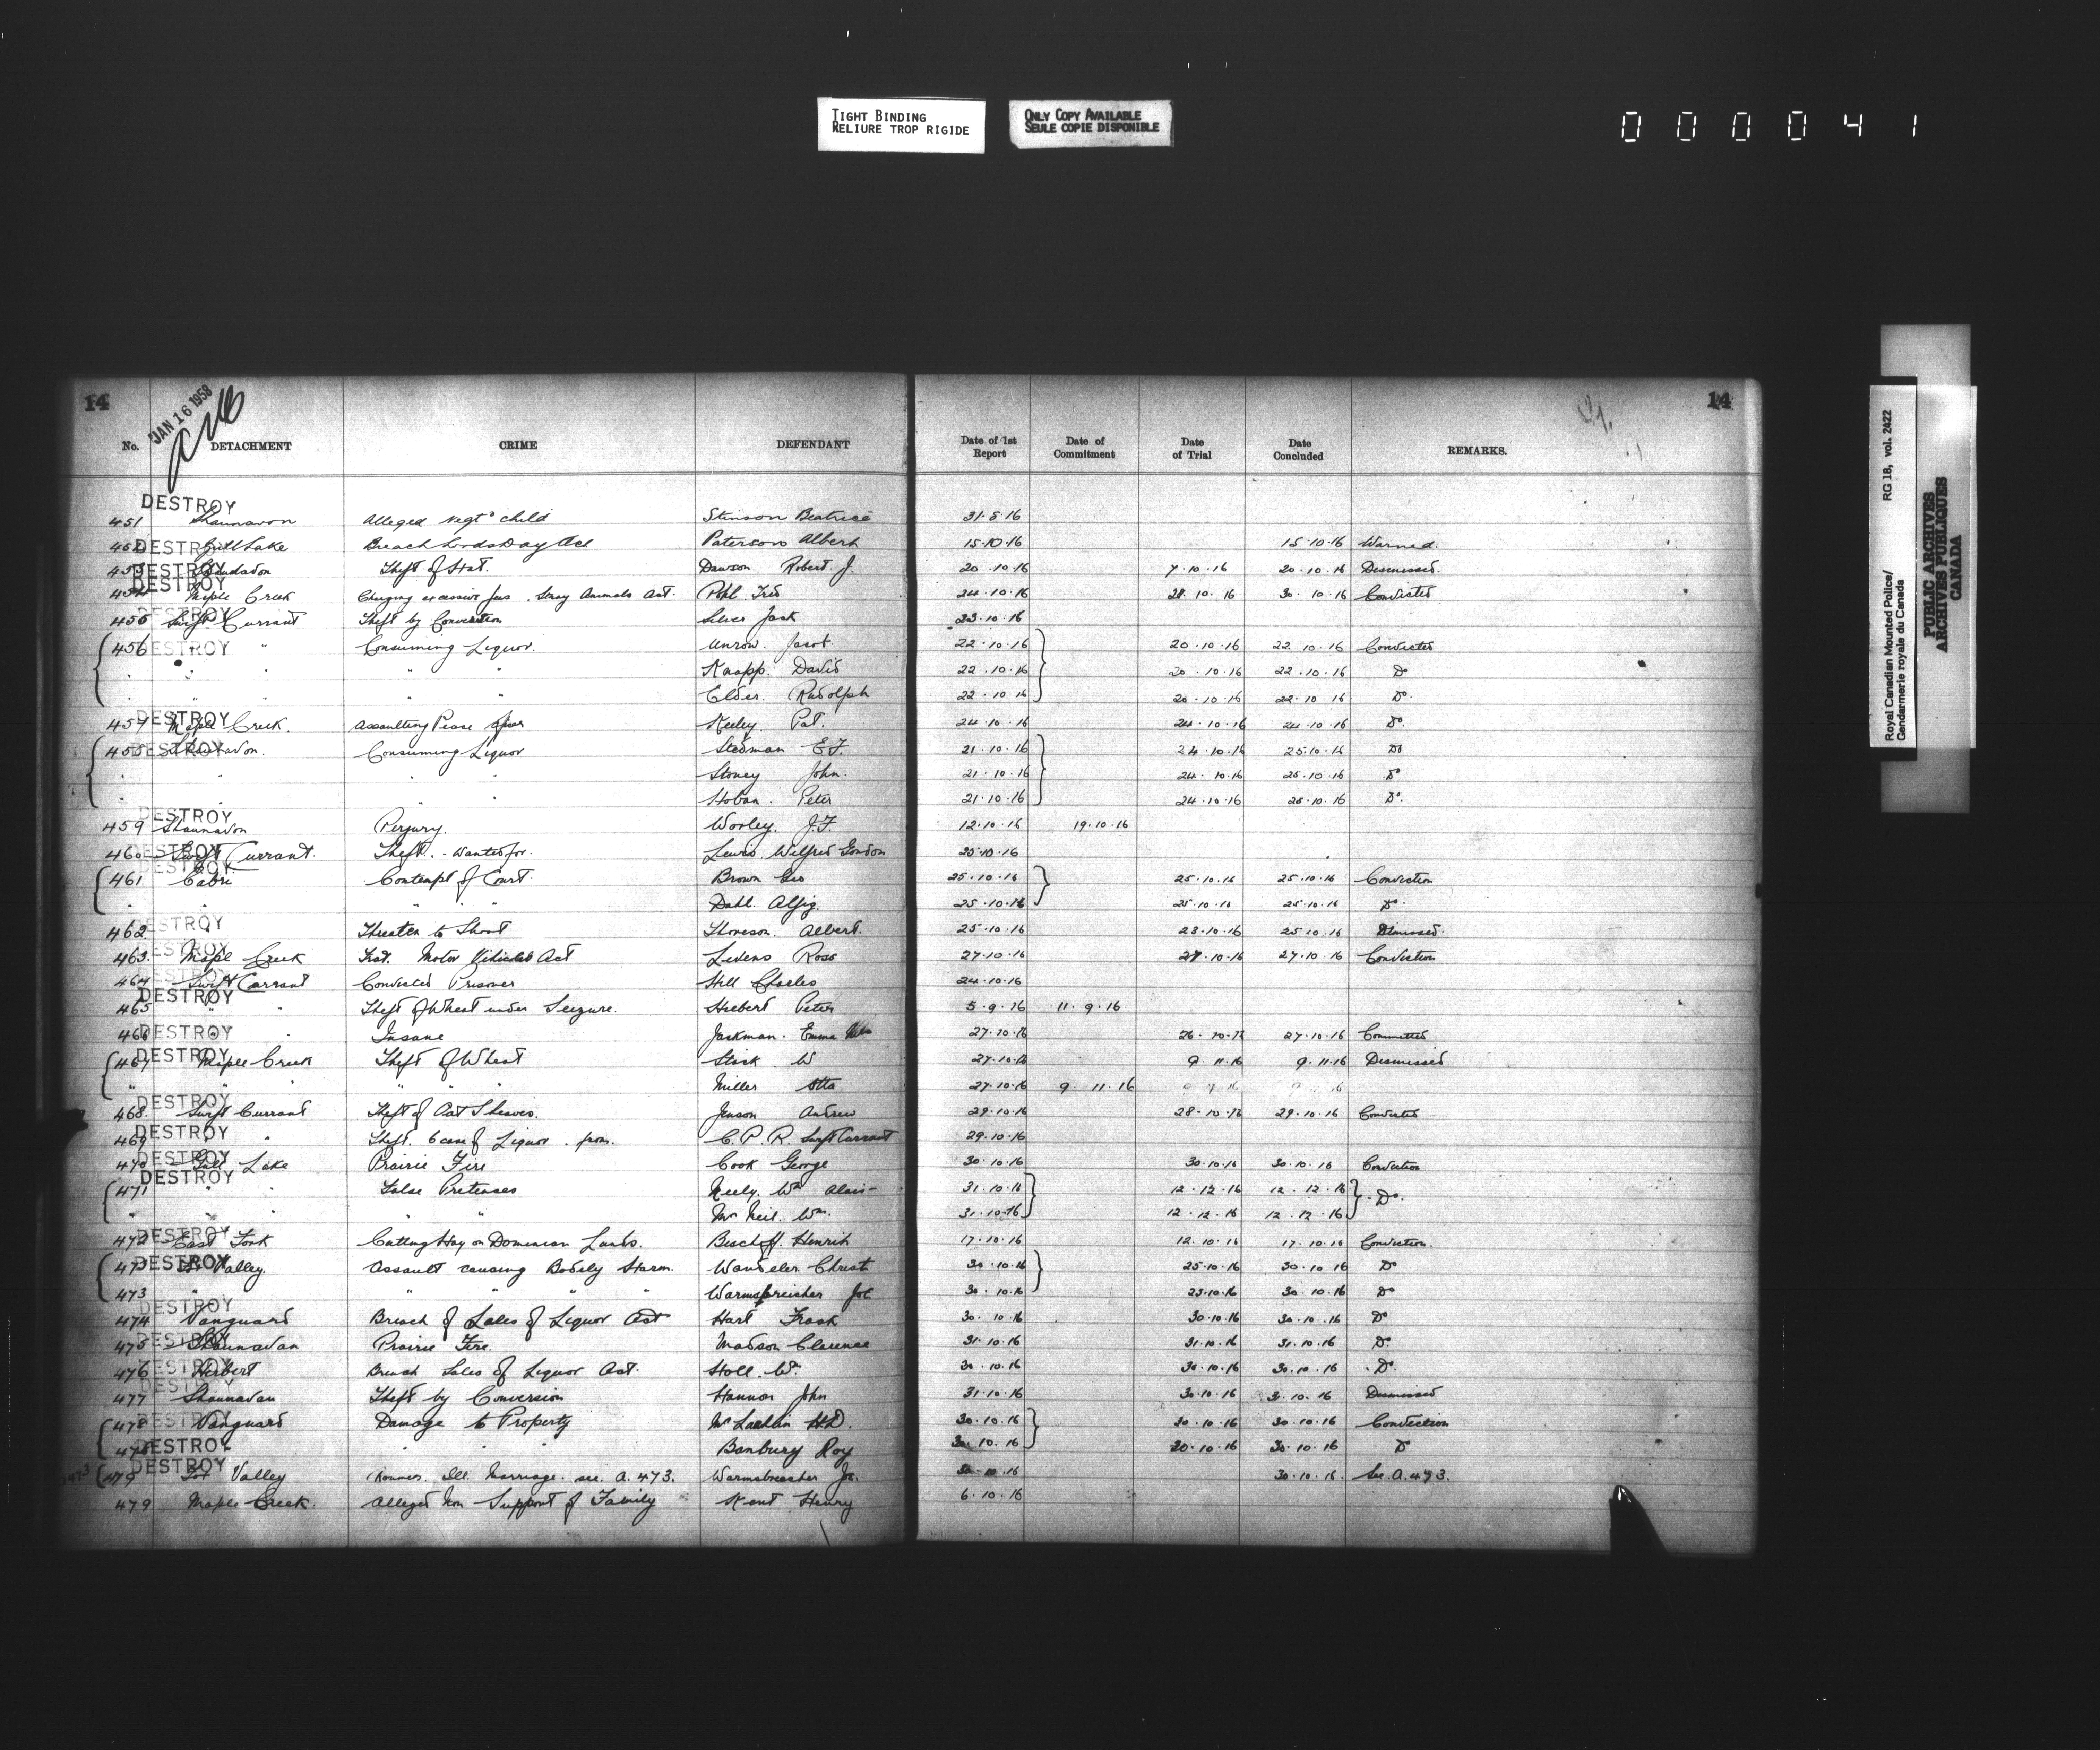 TIGHT BINDING
RELIURE TROP RIGIDE
ONLY COPY AVAILABLE
SEULE COPIE DISPONIBLE
000041
Royal Canadian Mounted Police/ RG 18, vol. 2422
Gendarmerie royale du Canada
PUBLIC ARCHIVES
ARCHIVES PUBLIQUES
CANADA
14 JAN 16 1958 14
No. DETACHMENT CRIME DEFENDANT Date of 1st Report Date of Commitment Date of Trial Date Concluded REMARKS.
DESTROY
451 Shaunavon Alleged Negt child Stinson Beatrice 31.8.16
452 DESTROY Gull Lake Breach Lords Day Act Paterson Albert 15.10.16 15.10.16 Warned.
453 DESTROY Theft of Dawson Robert J. 20.10.16 7.10.16 20.10.16 Dismissed.
454 DESTROY Maple Creek Charging excessive fees. Stray Animals Act. Pohl Fred 24.10.16 28.10.16 30.10.16 Convicted
455 DESTROY Swift Currant Theft by Conversion Silver Jack 23.10.16
456 DESTROY " " Consuming Liquor. Unrow. Jacob. 22.10.16 20.10.16 22.10.16 Convicted
" " " " Knapp. David 22.10.16 20.10.16 22.10.16 Do
" " " " Elder. Rudolph 22.10.16 20.10.16 22.10.16 Do.
457 DESTROY Maple Creek. Assaulting Peace Keeley. Pat. 24.10.16 24.10.16 24.10.16 Do.
458 DESTROY Shaunavon. Consuming Liquor Stedman E.F. 21.10.16 24.10.16 25.10.16 Do
" " " " Stoney John. 21.10.16 24.10.16 25.10.16 Do
" " " " Hoban. Peter 21.10.16 24.10.16 25.10.16 Do.
DESTROY
459 Shaunavon Perjury. Worley. J.F. 12.10.16 19.10.16
460 DESTROY Swift Currant. Theft. - Wanted for. Lewis Wilfred Gordon 25.10.16
DESTROY
461 Cabri Contempt of Court. Brown Geo 25.10.16 25.10.16 25.10.16 Conviction
" " " " Dahl. 25.10.16 25.10.16 25.10.16 Do.
462 DESTROY Threaten to Shoot Thoreson. Albert. 25.10.16 23.10.16 25.10.16 Dismissed.
463. DESTROY Maple Creek Motor Vehicles Act Livens Ross 27.10.16 27.10.16 27.10.16 Conviction
464 DESTROY Swift Currant Convicted Prisoner Hill Charles 24.10.16
465 DESTROY " " Theft of Wheat under Seizure. Hiebert Peter 5.9.16 11.9.16
466 DESTROY " " Insane Jackman. Emma 27.10.16 26.10.16 27.10.16 Committed
467 DESTROY Maple Creek Theft of Wheat Stack. W 27.10.16 9.11.16 9.11.16 Dismissed
" " " " Miller Otto 27.10.16 9.11.16
468. DESTROY Swift Currant Theft of Oat Sheaves. Jenson Andrew 29.10.16 28.10.16 29.10.16 Convicted
469 DESTROY " " Theft. 6 case of Liquor. from. C.P.R. Swift Currant 29.10.16
470 DESTROY Gull Lake Prairie Fire Cook George 30.10.16 30.10.16 30.10.16 Conviction
DESTROY
471 " " False Pretenses Neely. Wm 31.10.16 12.12.16 12.12.16 Do.
" " " " McNeil. Wm. 31.10.16 12.12.16 12.12.16
472 DESTROY East Fork Cutting Hay on Dominion Lands. Bischoff. Henrich 17.10.16 12.10.16 17.10.16 Conviction.
473 DESTROY Valley. Assault causing Bodily Harm. Wandeler Christ 30.10.16 25.10.16 30.10.16 Do
473 " " " " Warmsbreicher Joe 30.10.16 25.10.16 30.10.16 Do
DESTROY
474 Vanguard Breach of Sales of Liquor Act Hart Frank 30.10.16 30.10.16 30.10.16 Do
475 DESTROY Shaunavan Prairie Fire. Madson Clarence 31.10.16 31.10.16 31.10.16 Do.
476 DESTROY Herbert Breach Sales of Liquor Act. Stoll. Wm. 30.10.16 30.10.16 30.10.16 Do.
DESTROY
477 Shaunavan Theft by Conversion Hannos John 31.10.16 30.10.16 3.10.16 Dismissed
478 DESTROY Vanguard Damage to Property McLachlin H.D. 30.10.16 30.10.16 30.10.16 Conviction
478 DESTROY " " " Banbury Roy 30.10.16 30.10.16 30.10.16 Do
479 DESTROY Fox Valley Ill. Marriage. see. A.473. Warmsbreacher Jo. 30.10.16 30.10.16. See. A.473.
479 Maple Creek. Alleged Non Support of Family Kent Henry 6.10.16